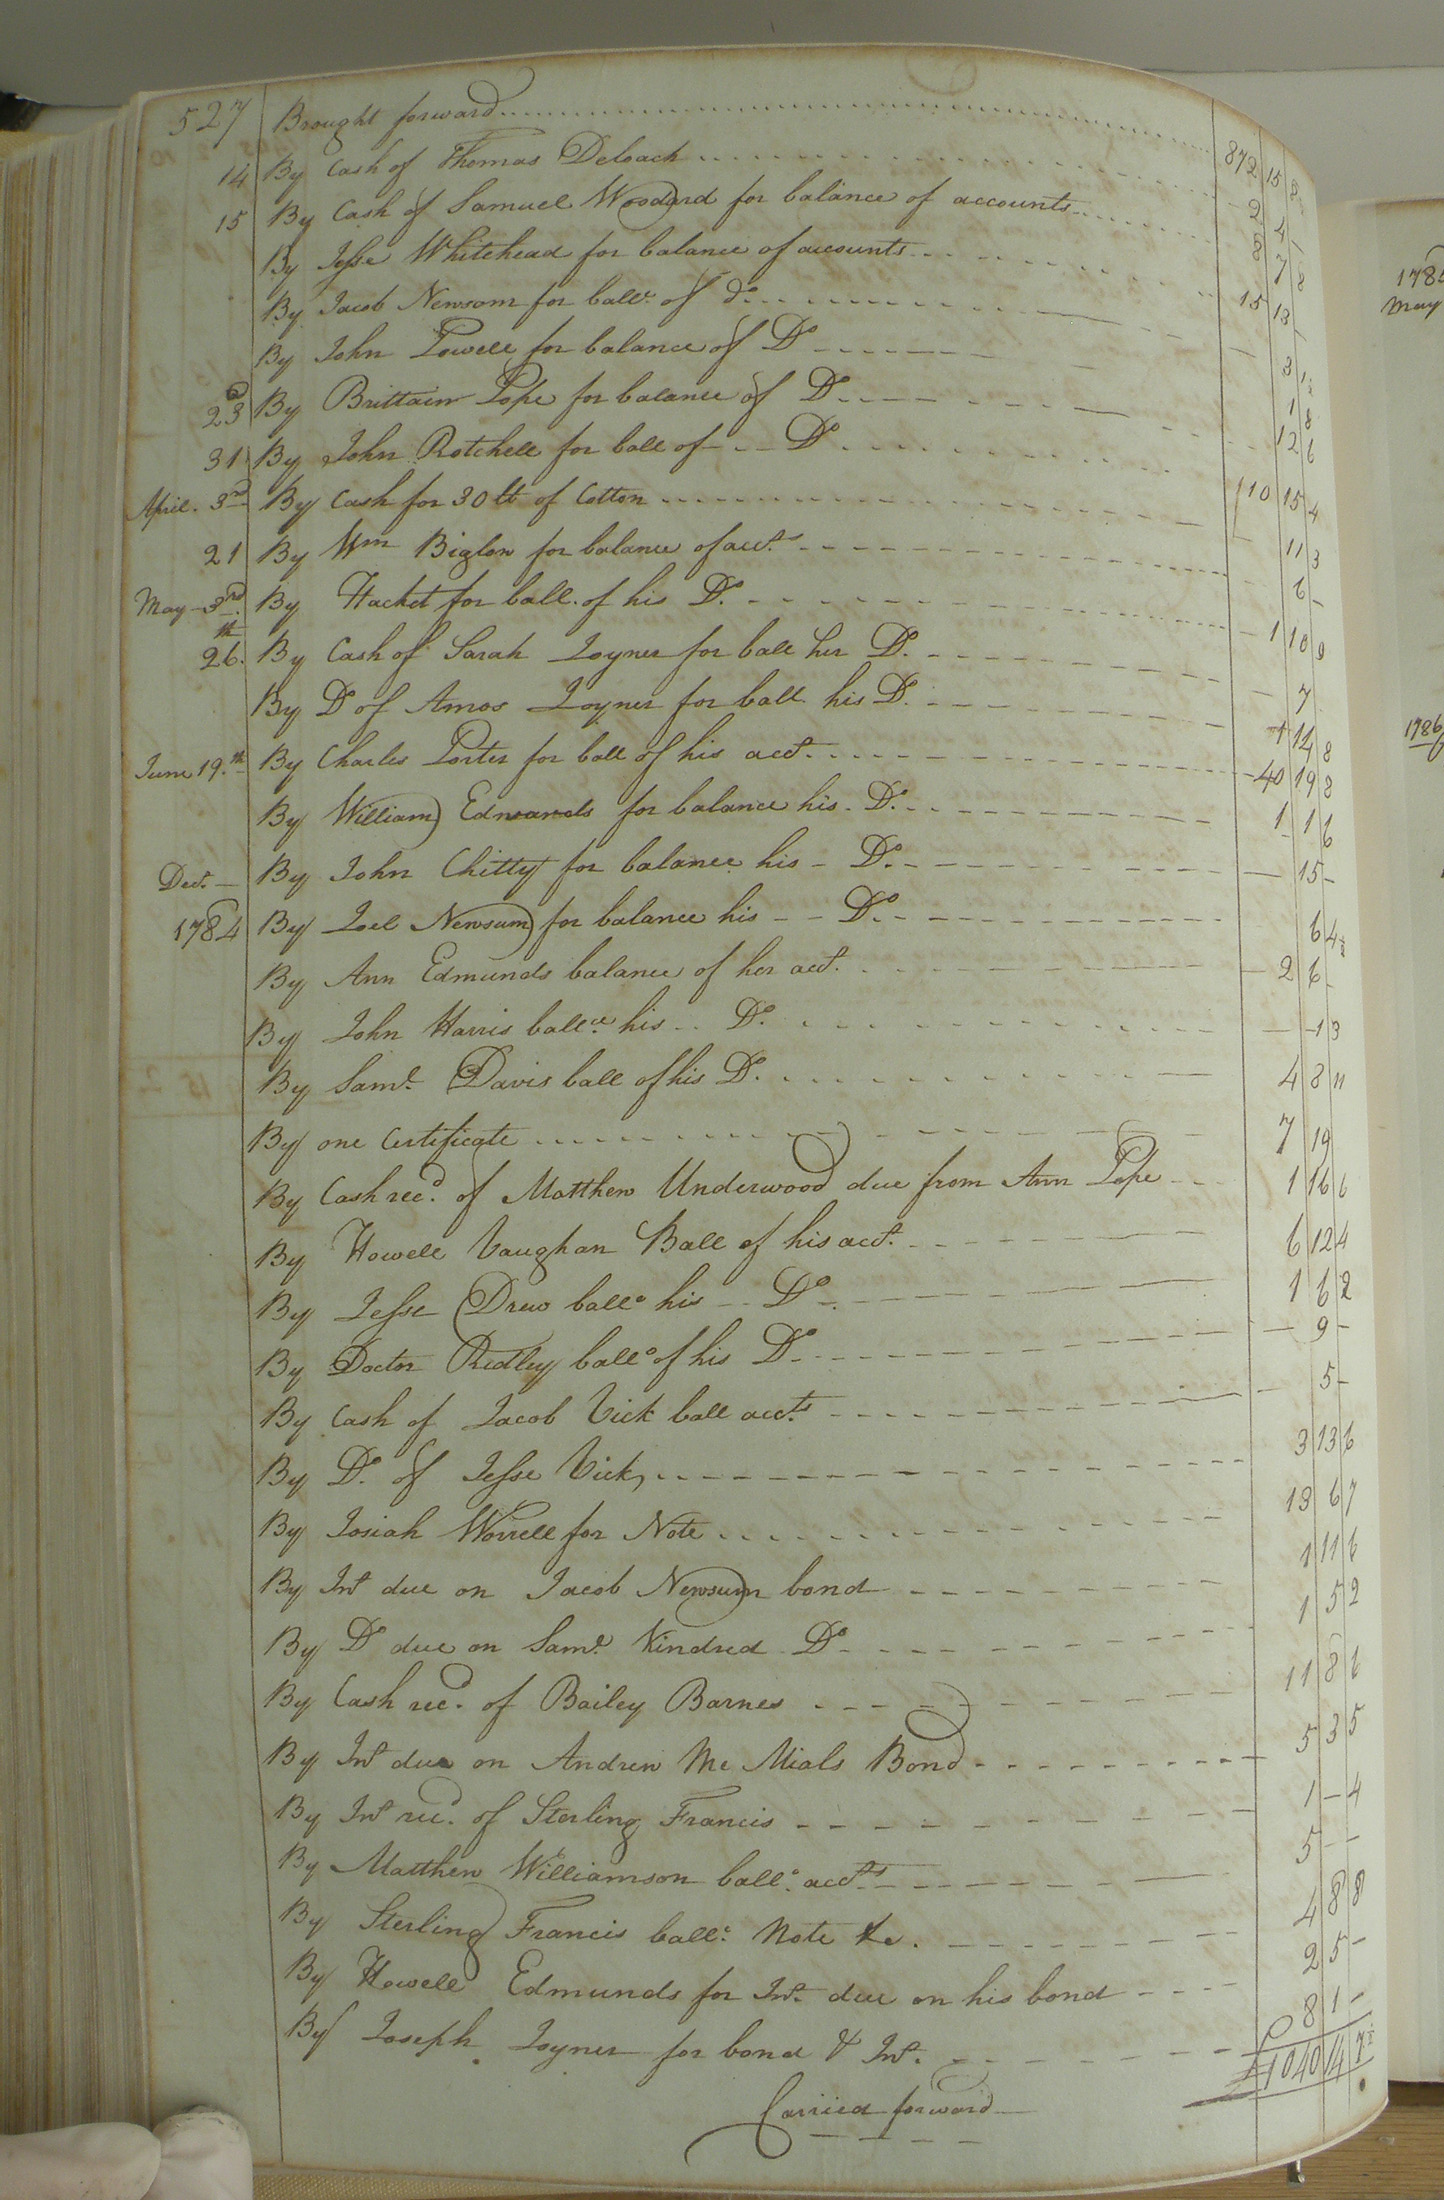 527 Brought forward 872 15 8
14 By Cash of Thomas Deloach 2 4 -
15 By Cash of Samuel Woodard for balance of accounts 8 7 8
By Jesse Whitehead for balance of accounts 15 13 -
By Jacob Newsom for balle. of do.
By John Powell for balance of Do 3 1½
23d By Brittain Pope for balance of Do. 1 8
31 By John Rotchell for ball of Do. 12 6
April. 3rd By Cash for 30 lb of Cotton 10 15 4
21 By Wm Biglow for balance of accts. 11 3
May 3rd. By Hacket for ball. of his Do. 6 -
26th. By Cash of Sarah Joyner for ball her Do. 1 10 9
By Do of Amos Joyner for ball his Do. 7
June 19th. By Charles Porter for ball of his acct. 1 14 8
40 19 8
By William Edmands for balance his Do. 1 1 6
Dect. By John Chitty for balance his Do. 15 -
1784 By Joel Newsum for balance his Do. 6 4½
By Ann Edmunds balance of her acct. 2 6 -
By John Harris ballce. his Do. 1 3
By Saml. Davis ball of his Do. 4 8 11
By one Certificate 7 19
By Cash recd. of Matthew Underwood due from Ann Pope 1 16 6
By Howell Vaughan Ball of his acct. 6 12 4
By Jesse Drew ballo his Do. 1 6 2
By Doctor Ridley ballo of his Do. 9 -
By Cash of Jacob Vick ball accts. 5 -
By Do. of Jesse Vick 3 13 6
By Josiah Worrell for Note 13 6 7
By Int due on Jacob Newsum bond 1 11 6
By Do due on Saml. Kindred Do 1 5 2
By Cash recd. of Bailey Barnes 11 8 6
By Int due on Andrew Mc Mials Bond 5 3 5
By Int recd. of Sterling Francis 1 - 4
By Matthew Williamson ballo. accts 5 - -
By Sterling Francis ballo. Note &c. 4 8 8
By Howell Edmunds for Int. due on his bond 2 5 -
By Joseph Joyner for bond & Int. 8 1 -
£1040 14 7½
Carried forward
1785
May
1786